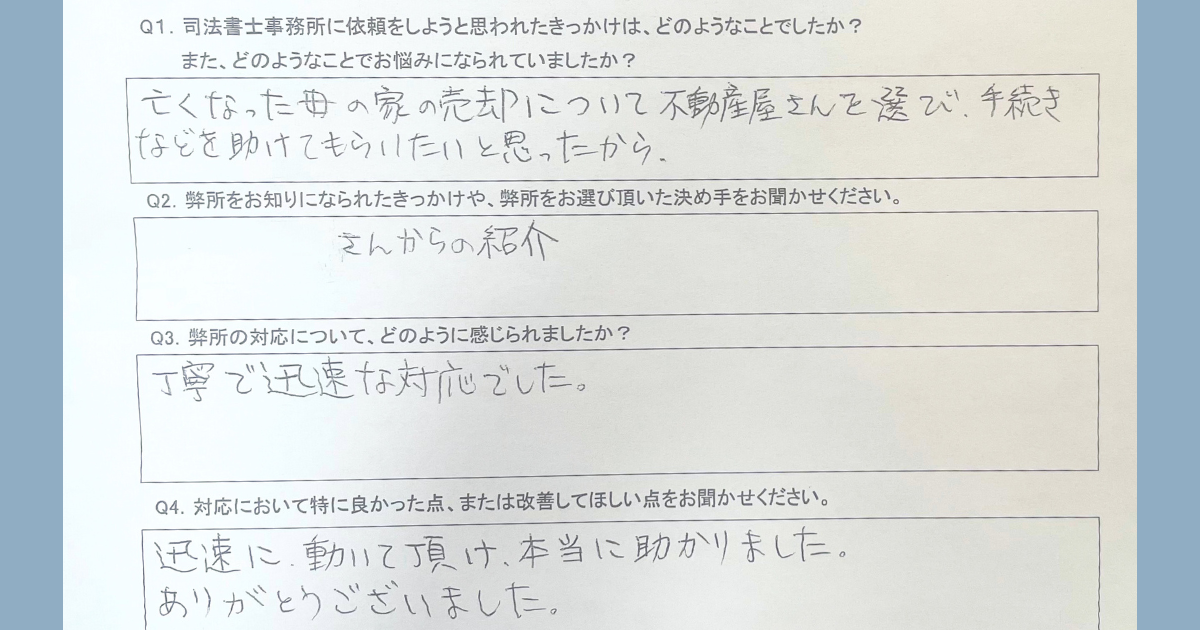 Q1. 司法書士事務所に依頼をしようと思われたきっかけは、どのようなことでしたか？
また、どのようなことでお悩みになられていましたか？
亡くなった母の家の売却について不動産屋さんを選び、手続き
などを助けてもらいたいと思ったから。
Q2. 弊所をお知りになられたきっかけや、弊所をお選び頂いた決め手をお聞かせください。
さんからの紹介
Q3. 弊所の対応について、どのように感じられましたか？
丁寧で迅速な対応でした。
Q4. 対応において特に良かった点、または改善してほしい点をお聞かせください。
迅速に、動いて頂け、本当に助かりました。
ありがとうございました。